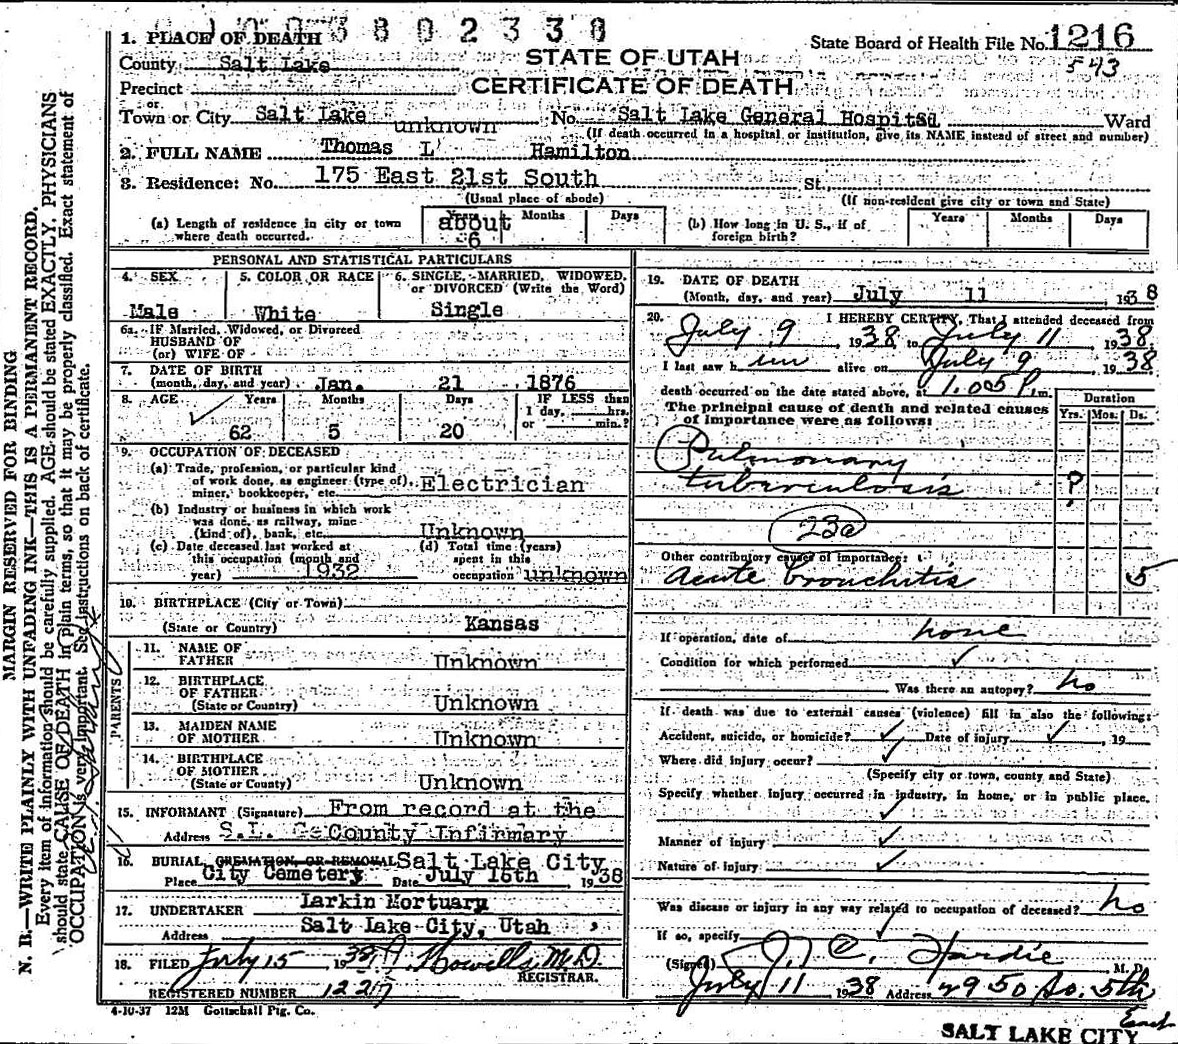 3 8 0 2 3 3 8
1. PLACE OF DEATH
County Salt Lake
STATE OF UTAH
CERTIFICATE OF DEATH
State Board of Health File No. 1216
543
Precinct
or
Town or City Salt Lake No. Salt Lake General Hospital Ward
unknown
(If death occurred in a hospital or institution, give its NAME instead of street and number)
2. FULL NAME Thomas L Hamilton
3. Residence: No. 175 East 21st South St.
(Usual place of abode) (If non-resident give city or town and State)
(a) Length of residence in city or town where death occurred. Years about 6 Months Days
(b) How long in U. S., if of foreign birth? Years Months Days
PERSONAL AND STATISTICAL PARTICULARS
4. SEX Male
5. COLOR OR RACE White
6. SINGLE, MARRIED, WIDOWED, or DIVORCED (Write the Word) Single
6a. IF Married, Widowed, or Divorced
HUSBAND OF
(or) WIFE OF
7. DATE OF BIRTH
(month, day, and year) Jan. 21 1876
8. AGE Years Months Days IF LESS than
1 day, hrs.
or min.?
62 5 20
9. OCCUPATION OF DECEASED
(a) Trade, profession, or particular kind
of work done, as engineer (type of),
miner, bookkeeper, etc. Electrician
(b) Industry or business in which work
was done, as railway, mine
(kind of), bank, etc. Unknown
(c) Date deceased last worked at
this occupation (month and
year) 1932
(d) Total time (years)
spent in this
occupation unknown
10. BIRTHPLACE (City or Town)
(State or Country) Kansas
PARENTS
11. NAME OF
FATHER Unknown
12. BIRTHPLACE
OF FATHER
(State or Country) Unknown
13. MAIDEN NAME
OF MOTHER Unknown
14. BIRTHPLACE
OF MOTHER
(State or Country) Unknown
15. INFORMANT (Signature) From record at the
Address S.L. County Infirmary
16. BURIAL, CREMATION, OR REMOVAL Salt Lake City
Place City Cemetery Date July 15th, 1938
17. UNDERTAKER Larkin Mortuary
Address Salt Lake City, Utah
18. FILED July 15 1938 Howells, M.D.
REGISTRAR.
REGISTERED NUMBER 1227
19. DATE OF DEATH
(Month, day, and year) July 11 1938
20. I HEREBY CERTIFY, That I attended deceased from
July 9, 1938, to July 11, 1938.
I last saw him alive on July 9, 1938
death occurred on the date stated above, at 1.005 P.m.
The principal cause of death and related causes
of importance were as follows:
Duration
Yrs. Mos. Ds.
Pulmonary
tuberculosis ?
23a
Other contributory causes of importance:
Acute bronchitis 5
If operation, date of none
Condition for which performed
Was there an autopsy? no
If death was due to external causes (violence) fill in also the following:
Accident, suicide, or homicide? Date of injury, 19
Where did injury occur?
(Specify city or town, county and State)
Specify whether injury occurred in industry, in home, or in public place.
Manner of injury
Nature of injury
Was disease or injury in any way related to occupation of deceased? no
If so, specify
(Signed) J. C. Hardie M. D.
July 11 1938 Address 2950 So. 5th
East
SALT LAKE CITY
4-10-37 12M Gottschall Ptg. Co.
MARGIN RESERVED FOR BINDING
N. B.—WRITE PLAINLY WITH UNFADING INK—THIS IS A PERMANENT RECORD.
Every item of information should be carefully supplied. AGE should be stated EXACTLY. PHYSICIANS
should state CAUSE OF DEATH in plain terms, so that it may be properly classified. Exact statement of
OCCUPATION is very important. See instructions on back of certificate.